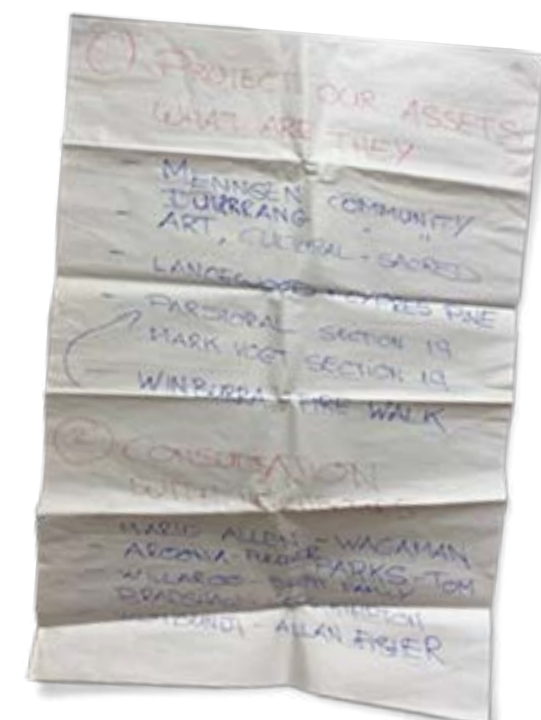 ① PROTECT OUR ASSETS
WHAT ARE THEY
- MENNGEN COMMUNITY
DJURRANG " "
- ART, CULTURAL - SACRED
- LANCEWOOD - CYPRES PINE
- PASTORAL SECTION 19
MARK VOGT SECTION 19
WINBURRA - FIRE WALK
② CONSULTATION
WITH
- ALLEN - WAGAMAN
PARKS - TOM
- WILLAROO - FAMILY
- BRADSHAW
- ALLAN FISHER